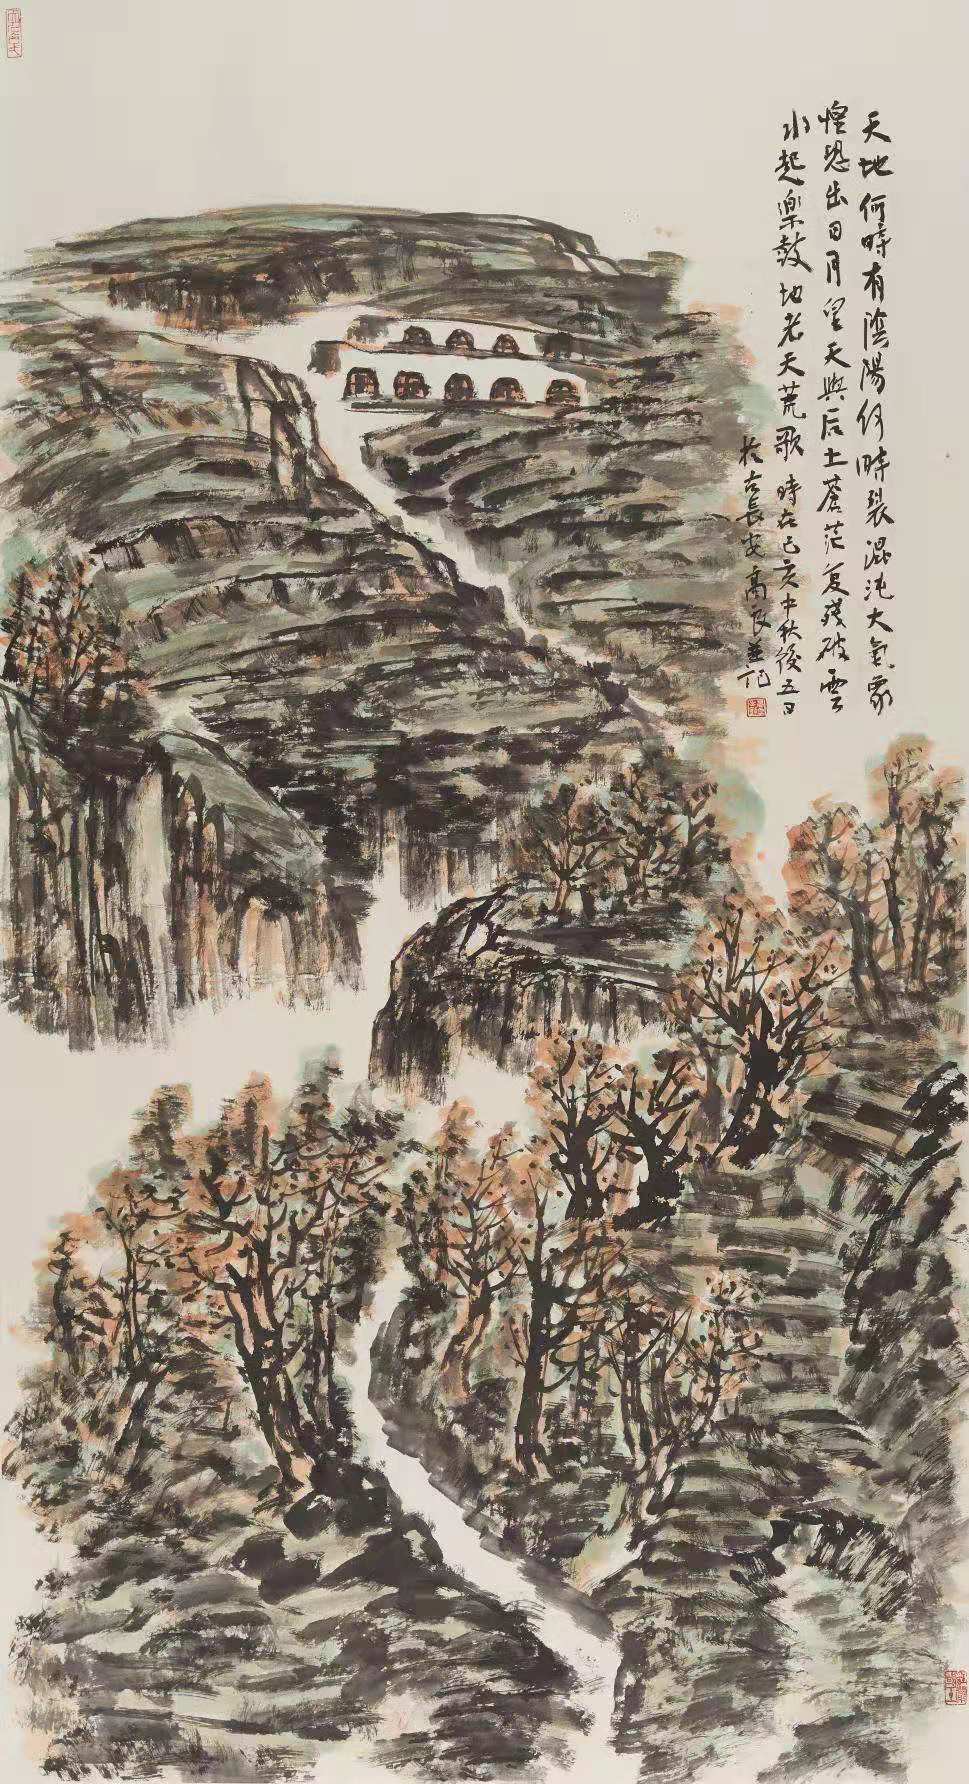 天地何時有陰陽何時裂混沌大氣象
惶恐出日月皇天與后土蒼茫复殘破雲
水起樂鼓地老天荒歌時在己亥中秋後五日
於古長安高良並記